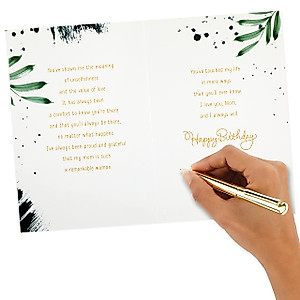 You've shown me the meaning
of unselfishness
and the value of love.
It has always been
a comfort to know you're there
and that you'll always be there,
no matter what happens.
I've always been proud and grateful
that my mom is such
a remarkable woman.
You've touched my life
in more ways
than you'll ever know.
I love you, Mom,
and I always will.
Happy Birthday